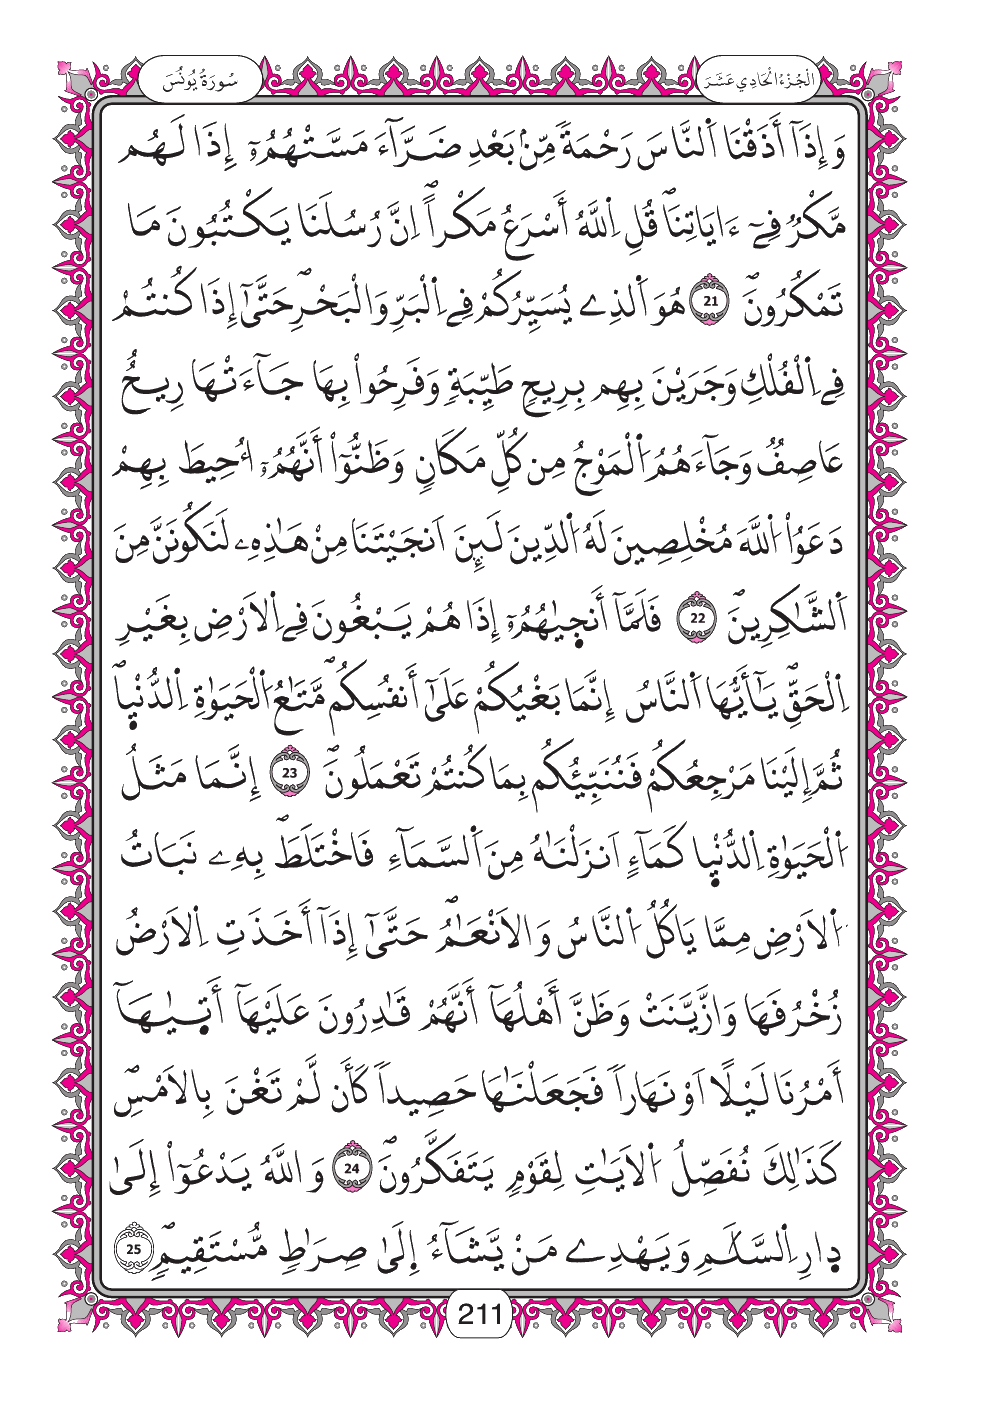 الجُزْءُ الْحَادِي عَشَرَ
سُورَةُ يُونُسَ
وَإِذَآ أَذَقْنَا اَ۬لنَّاسَ رَحْمَةٗ مِّنۢ بَعْدِ ضَرَّآءَ مَسَّتْهُمُۥٓ إِذَا لَهُم
مَّكْرٞ فِےٓ ءَايَاتِنَاۖ قُلِ اِ۬للَّهُ أَسْرَعُ مَكْراًۖ اِنَّ رُسُلَنَا يَكْتُبُونَ مَا
تَمْكُرُونَۖ 21 هُوَ اَ۬لذِے يُسَيِّرُكُمْ فِے اِ۬لْبَرِّ وَالْبَحْرِۖ حَتَّىٰٓ إِذَا كُنتُمْ
فِے اِ۬لْفُلْكِ وَجَرَيْنَ بِهِم بِرِيحٖ طَيِّبَةٖ وَفَرِحُواْ بِهَا جَآءَتْهَا رِيحٌ
عَاصِفٞ وَجَآءَهُمُ اَ۬لْمَوْجُ مِن كُلِّ مَكَانٖ وَظَنُّوٓاْ أَنَّهُمُۥٓ أُحِيطَ بِهِمْ
دَعَوُاْ اُ۬للَّهَ مُخْلِصِينَ لَهُ اُ۬لدِّينَ لَئِنَ اَنجَيْتَنَا مِنْ هَٰذِهِۦ لَنَكُونَنَّ مِنَ
اَ۬لشَّٰكِرِينَۖ 22 فَلَمَّآ أَنج۪يٰهُمُۥٓ إِذَا هُمْ يَبْغُونَ فِے اِ۬لَارْضِ بِغَيْرِ
اِ۬لْحَقِّۖ يَٰٓأَيُّهَا اَ۬لنَّاسُ إِنَّمَا بَغْيُكُمْ عَلَىٰٓ أَنفُسِكُمۖ مَّتَٰعُ اُ۬لْحَيَوٰةِ اِ۬لدُّنْي۪اۖ
ثُمَّ إِلَيْنَا مَرْجِعُكُمْ فَنُنَبِّئُكُم بِمَا كُنتُمْ تَعْمَلُونَۖ 23 إِنَّمَا مَثَلُ
اُ۬لْحَيَوٰةِ اِ۬لدُّنْي۪ا كَمَآءٍ اَنزَلْنَٰهُ مِنَ اَ۬لسَّمَآءِ فَاخْتَلَطَۖ بِهِۦ نَبَاتُ
اُ۬لَارْضِ مِمَّا يَاكُلُ اُ۬لنَّاسُ وَالَانْعَٰمُۖ حَتَّىٰٓ إِذَآ أَخَذَتِ اِ۬لَارْضُ
زُخْرُفَهَا وَازَّيَّنَتْ وَظَنَّ أَهْلُهَآ أَنَّهُمْ قَٰدِرُونَ عَلَيْهَآ أَت۪يٰهَآ
أَمْرُنَا لَيْلًا اَوْ نَهَاراٗ فَجَعَلْنَٰهَا حَصِيداٗ كَأَن لَّمْ تَغْنَ بِالَامْسِۖ
كَذَٰلِكَ نُفَصِّلُ اُ۬لَايَٰتِ لِقَوْمٖ يَتَفَكَّرُونَۖ 24 وَاللَّهُ يَدْعُوٓاْ إِلَىٰ
د۪ارِ اِ۬لسَّلَٰمِ وَيَهْدِے مَنْ يَّشَآءُ اِ۪لَىٰ صِرَٰطٖ مُّسْتَقِيمٖۖ 25
211